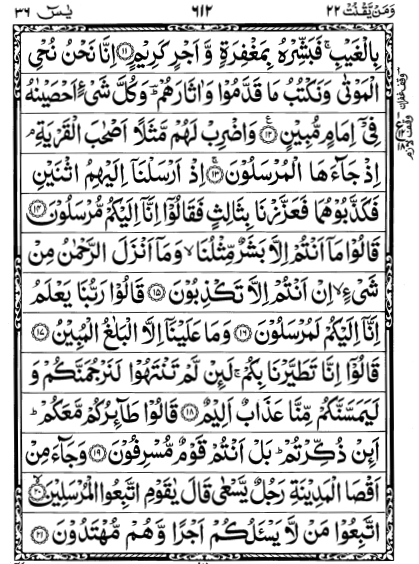 وَمَن يَّقْنُتْ ٢٢ ٦١٢ يٰسٓ ٣٦
بِالْغَيْبِ ۚ فَبَشِّرْهُ بِمَغْفِرَةٍ وَّ اَجْرٍ كَرِيْمٍ ﴿۱۱﴾ اِنَّا نَحْنُ نُحْيِ
الْمَوْتٰى وَنَكْتُبُ مَا قَدَّمُوْا وَاٰثَارَهُمْ ؕ وَكُلَّ شَيْءٍ اَحْصَيْنٰهُ
فِيْٓ اِمَامٍ مُّبِيْنٍ ﴿۱۲﴾ وَاضْرِبْ لَهُمْ مَّثَلًا اَصْحٰبَ الْقَرْيَةِ ۘ
اِذْ جَآءَهَا الْمُرْسَلُوْنَ ﴿۱۳﴾ اِذْ اَرْسَلْنَاۤ اِلَيْهِمُ اثْنَيْنِ
فَكَذَّبُوْهُمَا فَعَزَّزْنَا بِثَالِثٍ فَقَالُوْۤا اِنَّاۤ اِلَيْكُمْ مُّرْسَلُوْنَ ﴿۱۴﴾
قَالُوْا مَاۤ اَنْتُمْ اِلَّا بَشَرٌ مِّثْلُنَا ۙ وَمَاۤ اَنْزَلَ الرَّحْمٰنُ مِنْ
شَيْءٍ ۙ اِنْ اَنْتُمْ اِلَّا تَكْذِبُوْنَ ﴿۱۵﴾ قَالُوْا رَبُّنَا يَعْلَمُ
اِنَّاۤ اِلَيْكُمْ لَمُرْسَلُوْنَ ﴿۱۶﴾ وَمَا عَلَيْنَاۤ اِلَّا الْبَلٰغُ الْمُبِيْنُ ﴿۱۷﴾
قَالُوْۤا اِنَّا تَطَيَّرْنَا بِكُمْ ۚ لَئِنْ لَّمْ تَنْتَهُوْا لَنَرْجُمَنَّكُمْ وَ
لَيَمَسَّنَّكُمْ مِّنَّا عَذَابٌ اَلِيْمٌ ﴿۱۸﴾ قَالُوْا طَآئِرُكُمْ مَّعَكُمْ ؕ
اَئِنْ ذُكِّرْتُمْ ؕ بَلْ اَنْتُمْ قَوْمٌ مُّسْرِفُوْنَ ﴿۱۹﴾ وَجَآءَ مِنْ
اَقْصَا الْمَدِيْنَةِ رَجُلٌ يَّسْعٰى قَالَ يٰقَوْمِ اتَّبِعُوا الْمُرْسَلِيْنَ ﴿۲۰﴾
اتَّبِعُوْا مَنْ لَّا يَسْـَٔلُكُمْ اَجْرًا وَّهُمْ مُّهْتَدُوْنَ ﴿۲۱﴾
وقف غفران
وقف لازم